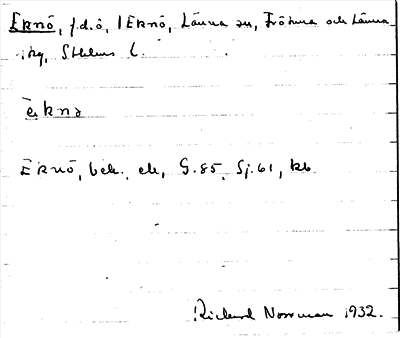 Eknö, f.d.ö, i Eknö, Länna sn, Frötuna och Länna
skg, Sthlms l.
ēknə
Eknö, beb., ek, G.85, Sj.61, kb
Richard Norrman 1932.